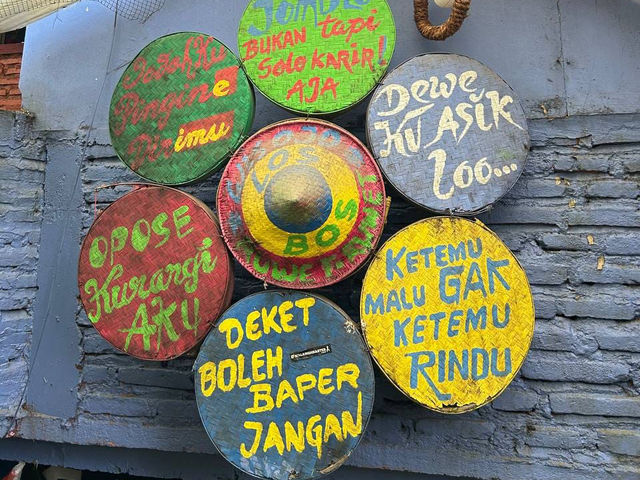 JOMBLO
BUKAN tapi
Solo karir!
AJA
Pingine
imu
Dewe
KU ASIK
loo...
LOS
BOS
OPOSE
Kurangi
AKU
KETEMU
MALU GAK
KETEMU
RINDU
DEKET
BOLEH
BAPER
JANGAN